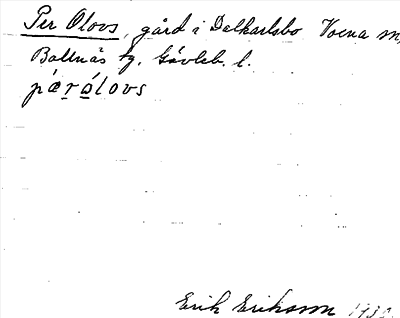 Per Olovs, gård i Dalkarlsbo Voxna sn,
Bollnäs tg. Gävleb. l.
pærálovs
Erik Eriksson